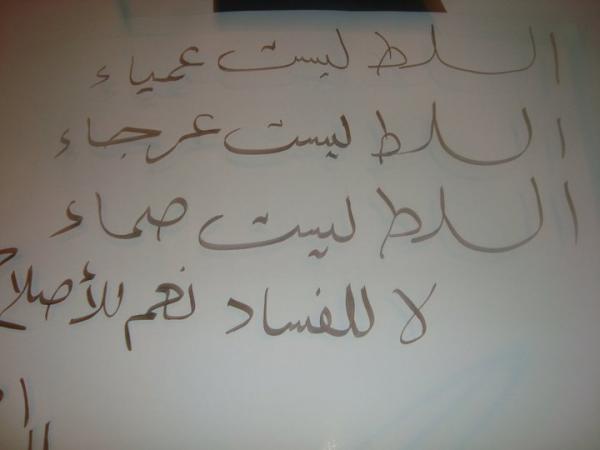 السلط ليست عمياء
السلط ليست عرجاء
السلط ليست صماء
لا للفساد نعم للأصلاح